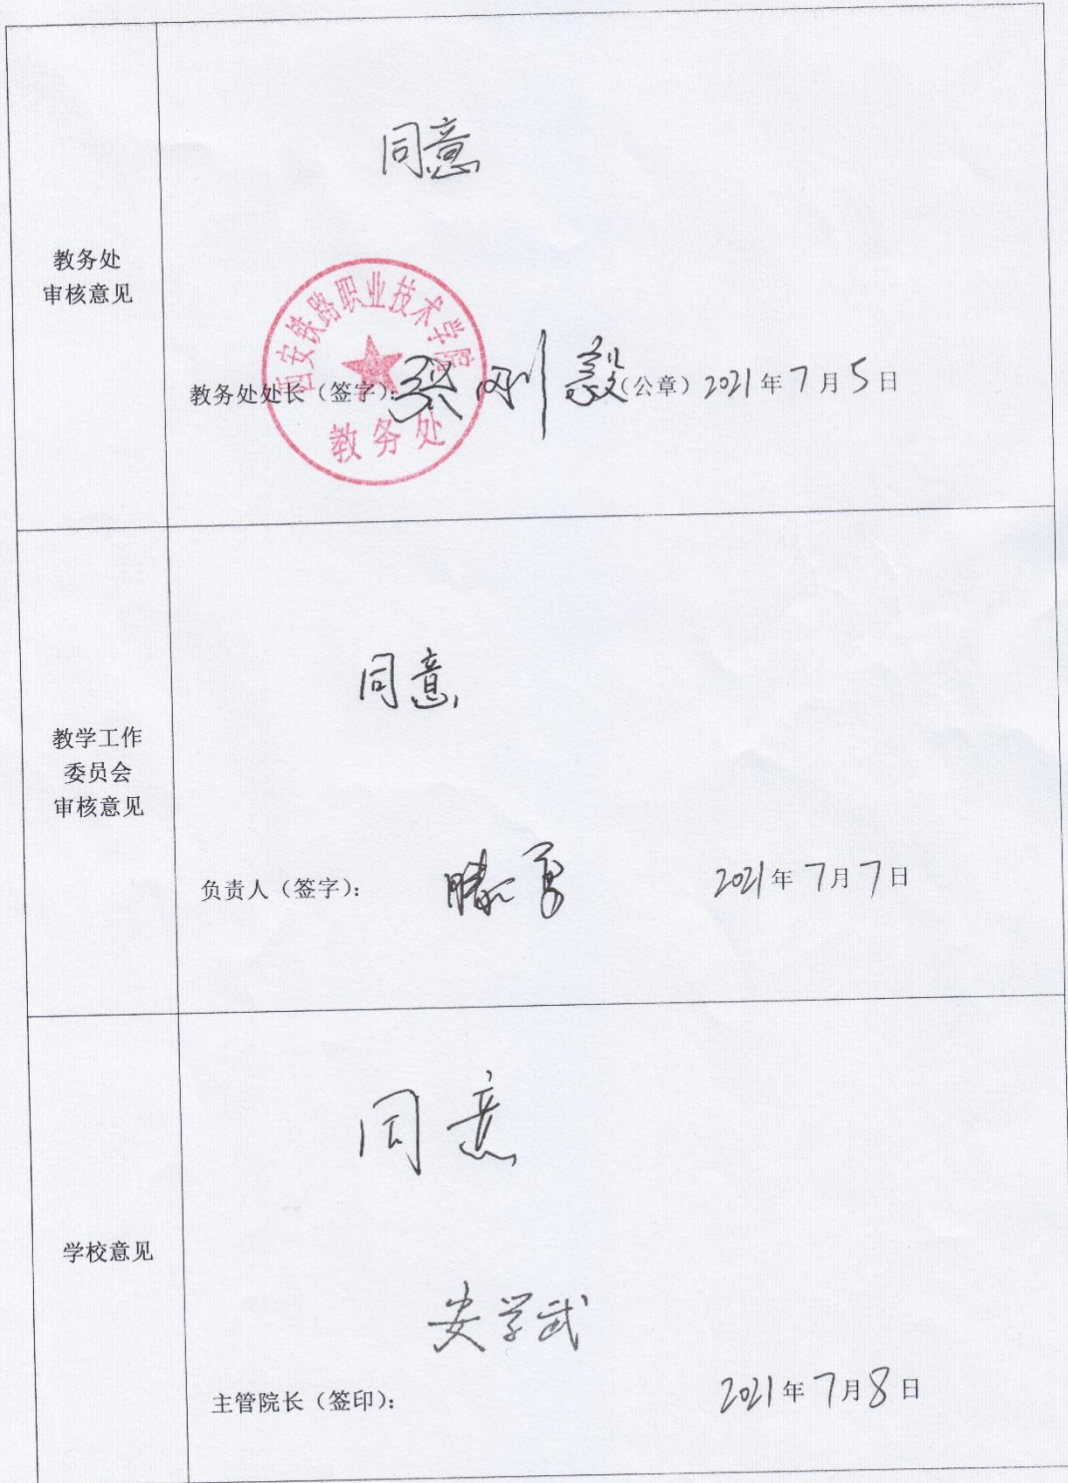 教务处
审核意见
同意
西安铁路职业技术学院
教务处
教务处处长（签字）： 刚毅（公章）2021年7月5日
教学工作
委员会
审核意见
同意
负责人（签字）： 滕勇 2021年7月7日
学校意见
同意
安学武
主管院长（签印）： 2021年7月8日